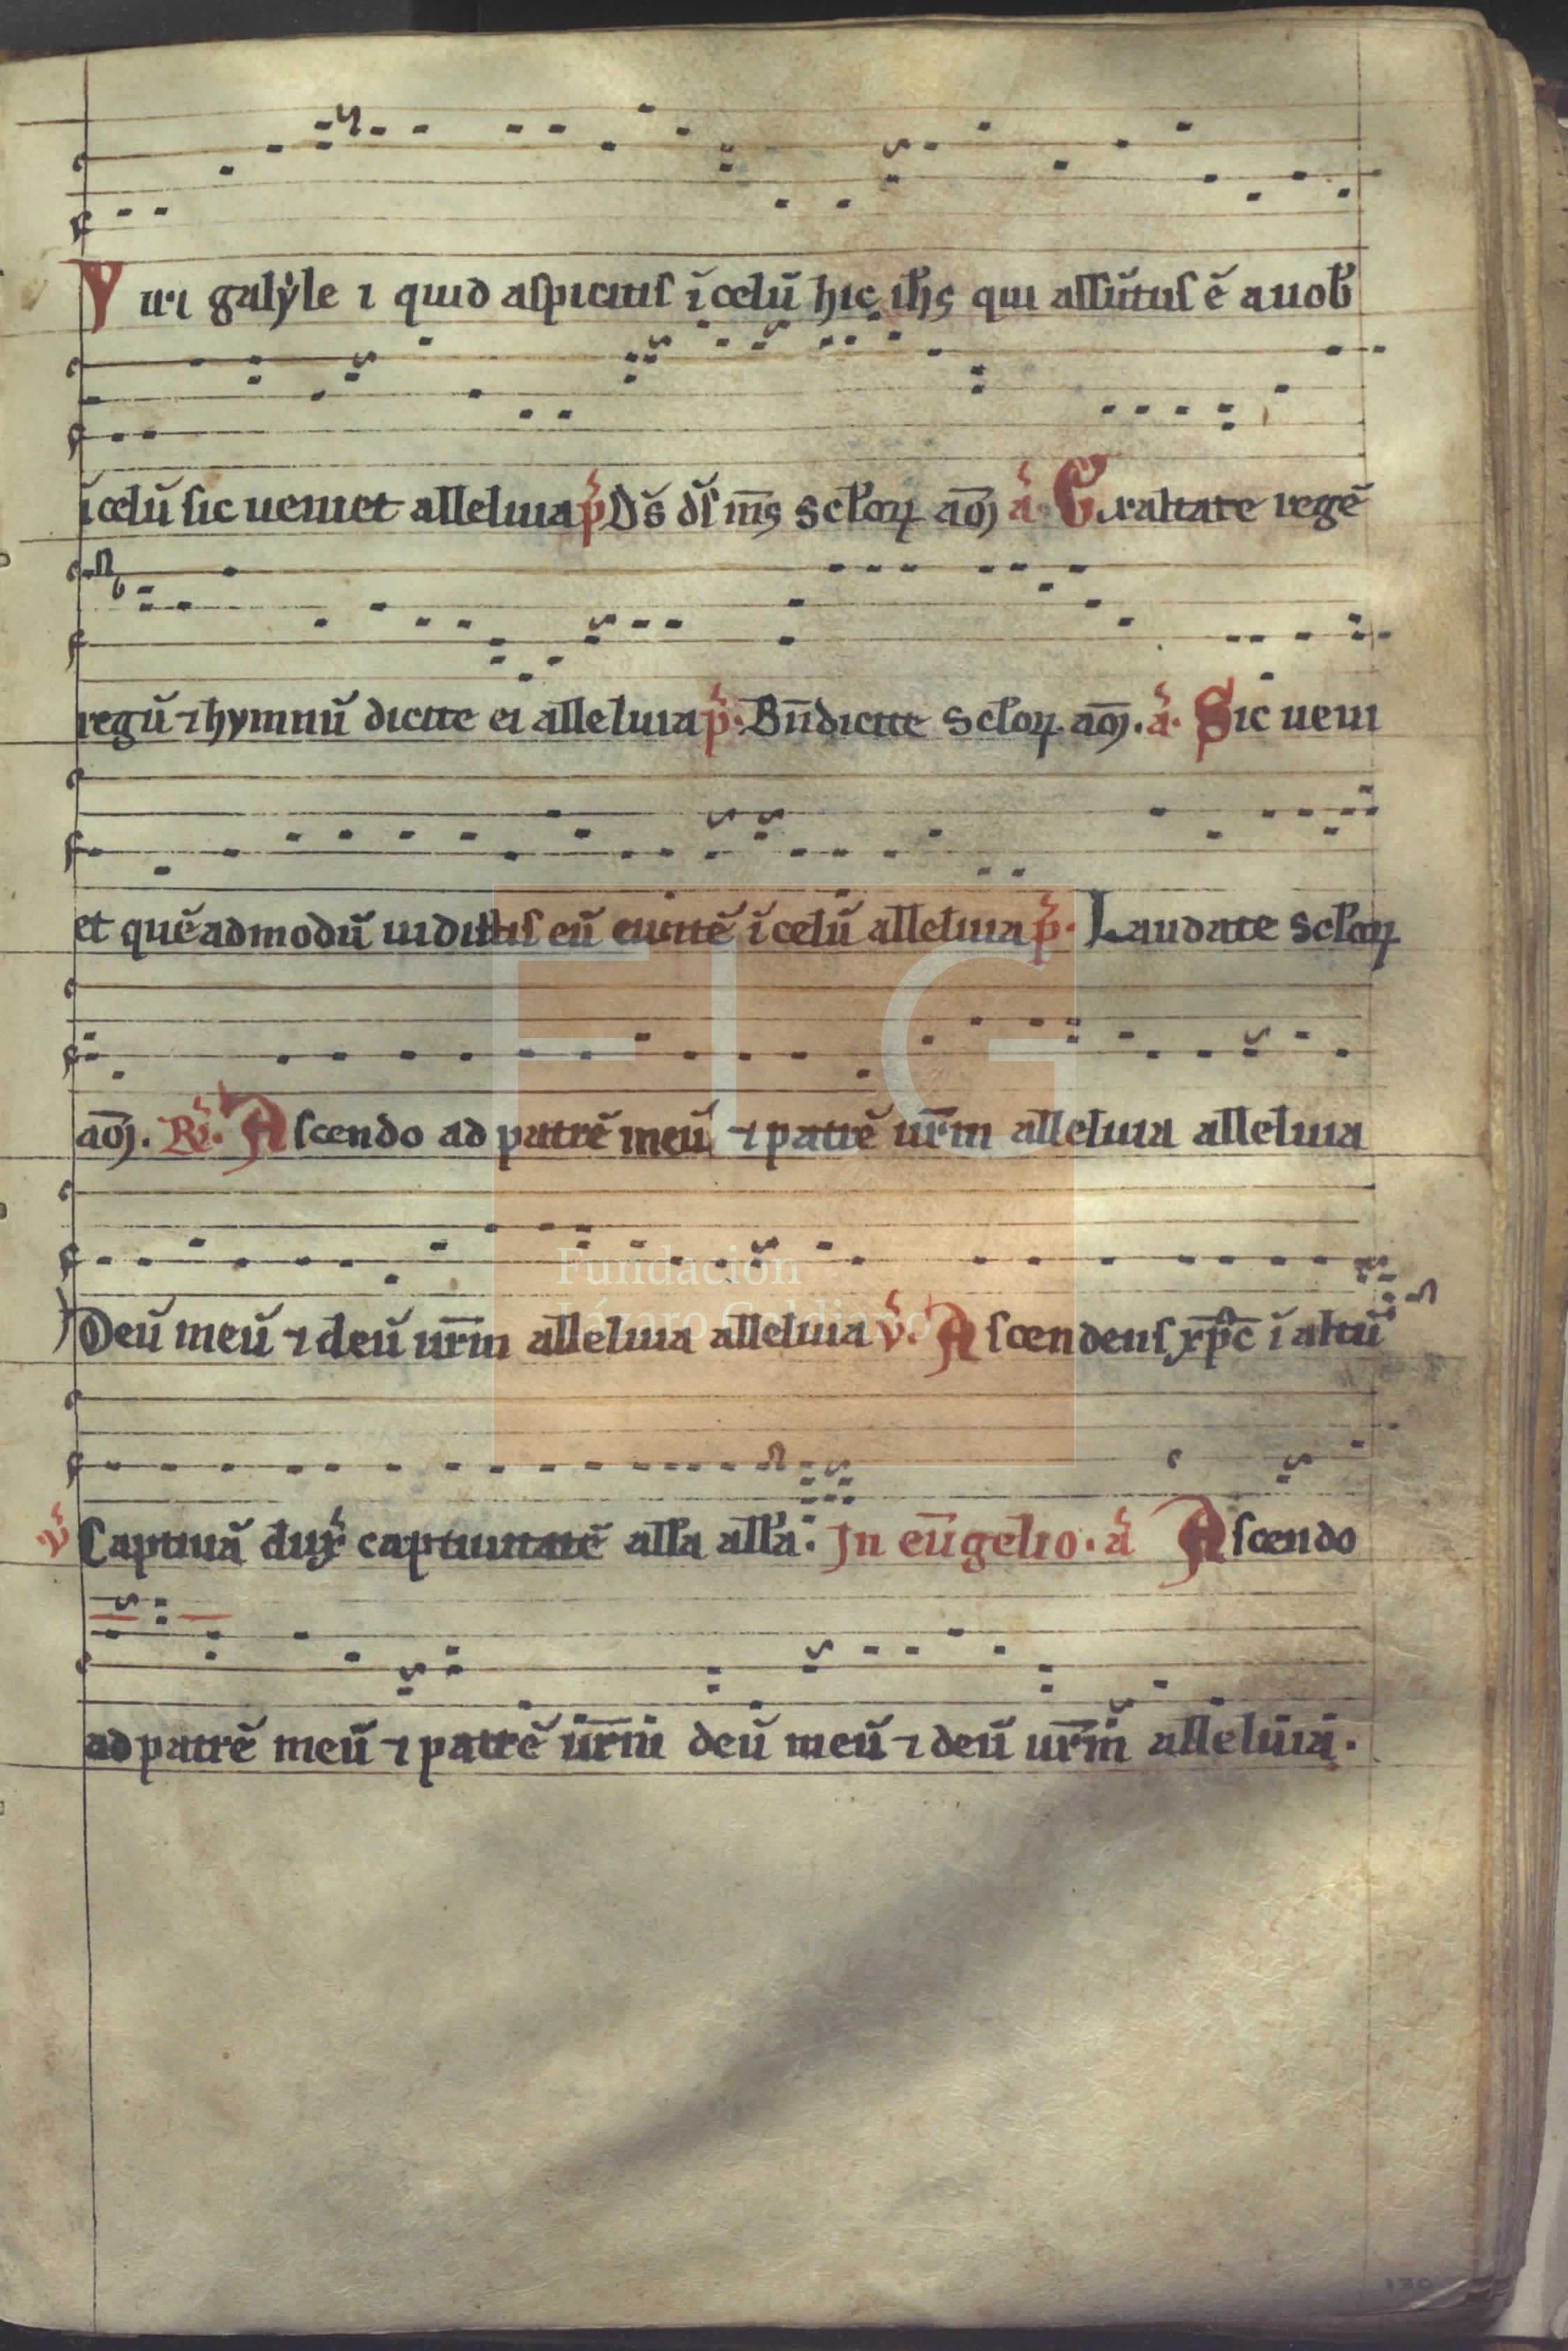 Viri galẏle i quid aspicitis ī celū hic ih̄s qui assūtus ē a uob̄
ī celū sic ueniet alleluia p̄. Dš dš mš sclorꝝ am̄. a. Exaltate regē
regū ⁊ hymnū dicite ei alleluia p̄. Bn̄dicite sclorꝝ. am̄. a. Sic ueni
et quē admodū uidistis eū euntē ī celū alleluia p̄. Laudate sclorꝝ
am̄. Rı̄. Ascendo ad patrē meū ⁊ patrē ur̄m alleluia alleluia
Deū meū ⁊ deū ur̄m alleluia alleluia v̄. Ascendens xp̄c ī altū
v̄ Captiuā dux captiuitatē alla alla. In eūgelio. a Ascendo
ad patrē meū ⁊ patrē ur̄m deū meū ⁊ deū ur̄m alleluia.
FLG
Fundación
Lázaro Galdiano
130